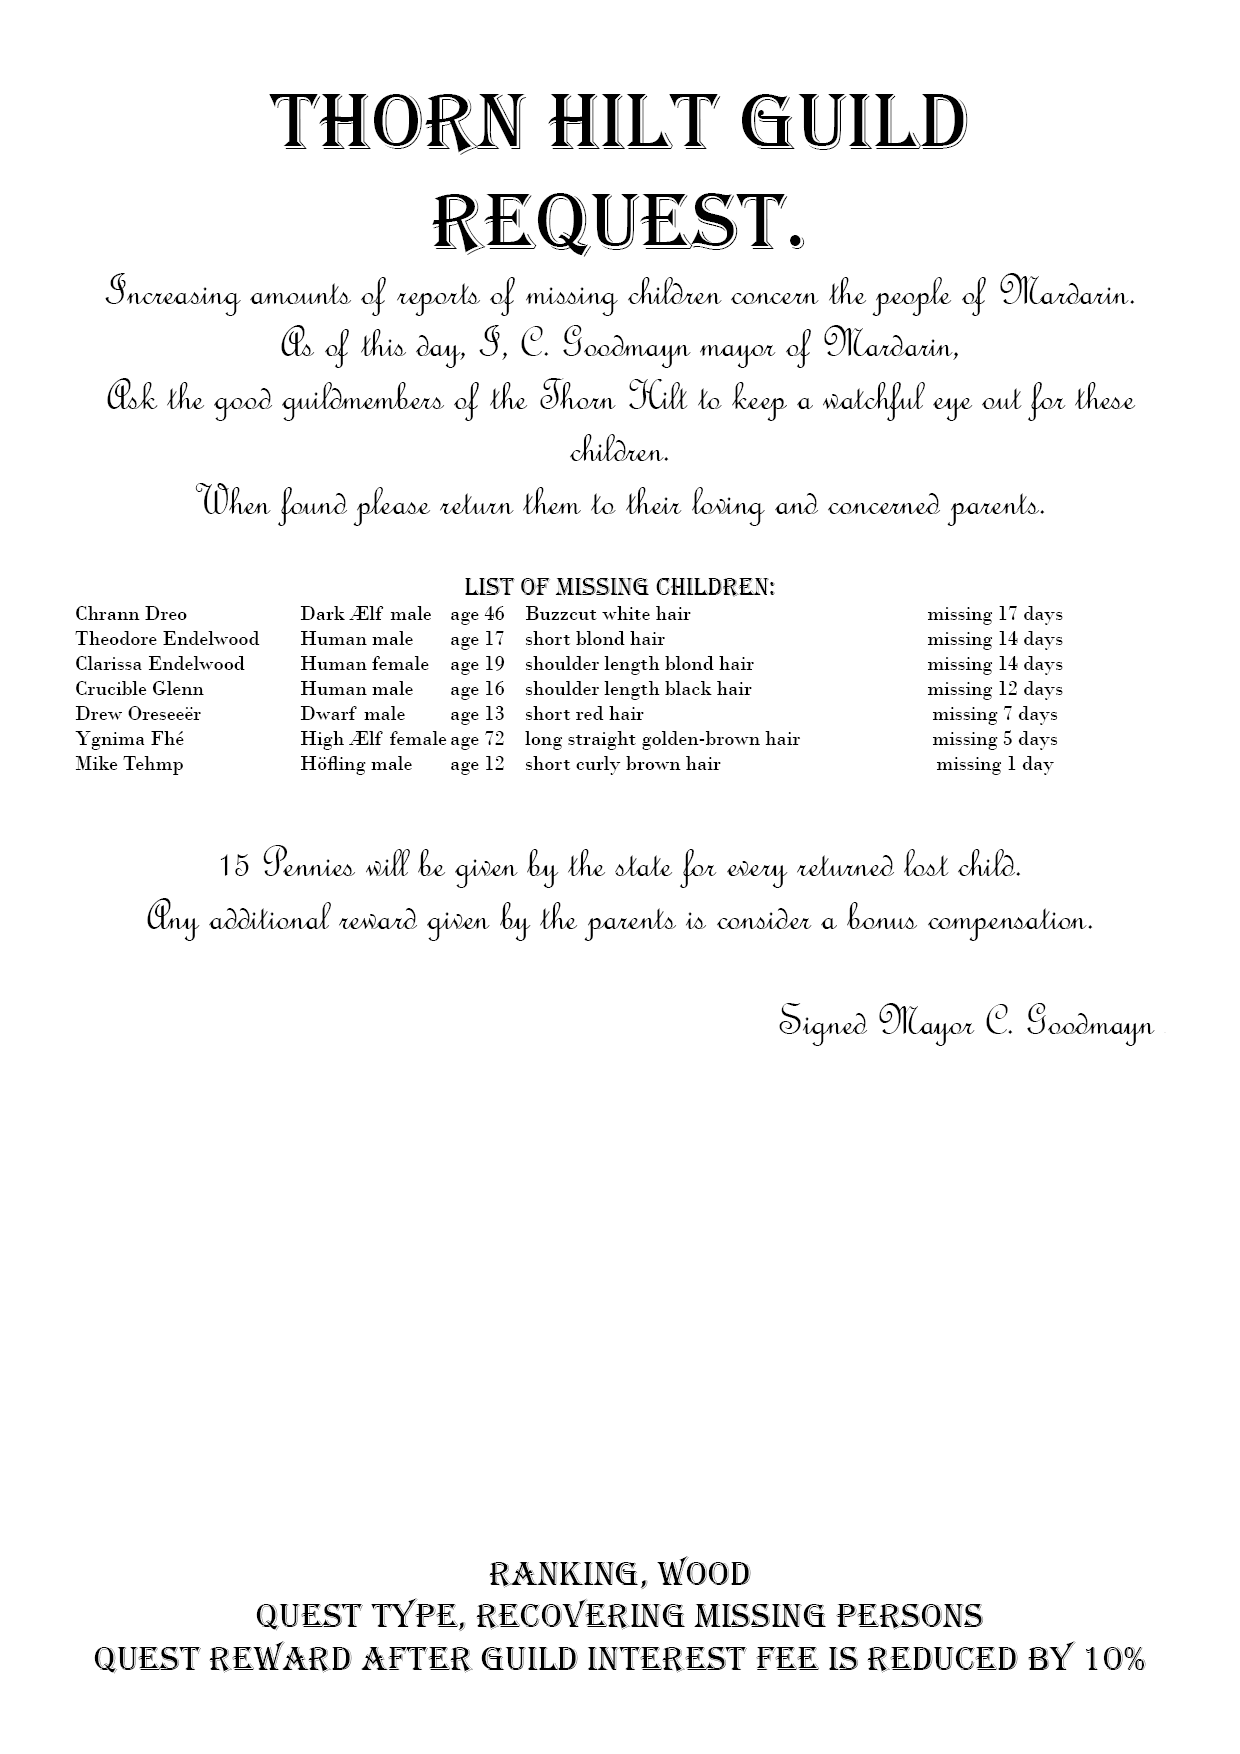 THORN HILT GUILD
REQUEST.
Increasing amounts of reports of missing children concern the people of Mardarin.
As of this day, I, C. Goodmayn mayor of Mardarin,
Ask the good guildmembers of the Thorn Hilt to keep a watchful eye out for these
children.
When found please return them to their loving and concerned parents.
LIST OF MISSING CHILDREN:
Chrann Dreo Dark Ælf male age 46 Buzzcut white hair missing 17 days
Theodore Endelwood Human male age 17 short blond hair missing 14 days
Clarissa Endelwood Human female age 19 shoulder length blond hair missing 14 days
Crucible Glenn Human male age 16 shoulder length black hair missing 12 days
Drew Oreseeër Dwarf male age 13 short red hair missing 7 days
Ygnima Fhé High Ælf female age 72 long straight golden-brown hair missing 5 days
Mike Tehmp Höfling male age 12 short curly brown hair missing 1 day
15 Pennies will be given by the state for every returned lost child.
Any additional reward given by the parents is consider a bonus compensation.
Signed Mayor C. Goodmayn
RANKING, WOOD
QUEST TYPE, RECOVERING MISSING PERSONS
QUEST REWARD AFTER GUILD INTEREST FEE IS REDUCED BY 10%